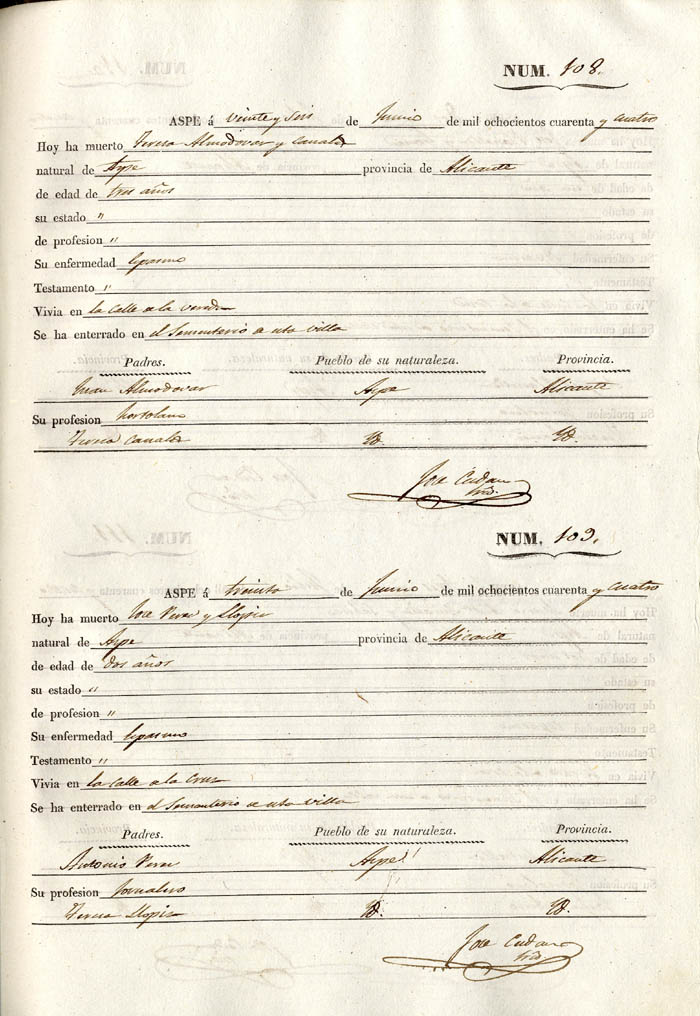 NUM. 108.
ASPE á veinte y seis de Junio de mil ochocientos cuarenta y cuatro
Hoy ha muerto Teresa Almodovar y Canales
natural de Aspe provincia de Alicante
de edad de tres años
su estado "
de profesion "
Su enfermedad Espasmo
Testamento "
Vivia en la calle a la vereda
Se ha enterrado en el Sementerio de esta villa
Padres. Pueblo de su naturaleza. Provincia.
Juan Almodovar Aspe Alicante
Su profesion hortolano
Teresa Canales Yd. Yd.
Jose
NUM. 109.
ASPE á treinta de Junio de mil ochocientos cuarenta y cuatro
Hoy ha muerto Jose Perez y Llopis
natural de Aspe provincia de Alicante
de edad de dos años
su estado "
de profesion "
Su enfermedad Espasmo
Testamento "
Vivia en la calle a la Cruz
Se ha enterrado en el Sementerio de esta villa
Padres. Pueblo de su naturaleza. Provincia.
Antonio Perez Aspe Alicante
Su profesion Jornalero
Teresa Llopis Yd. Yd.
Jose